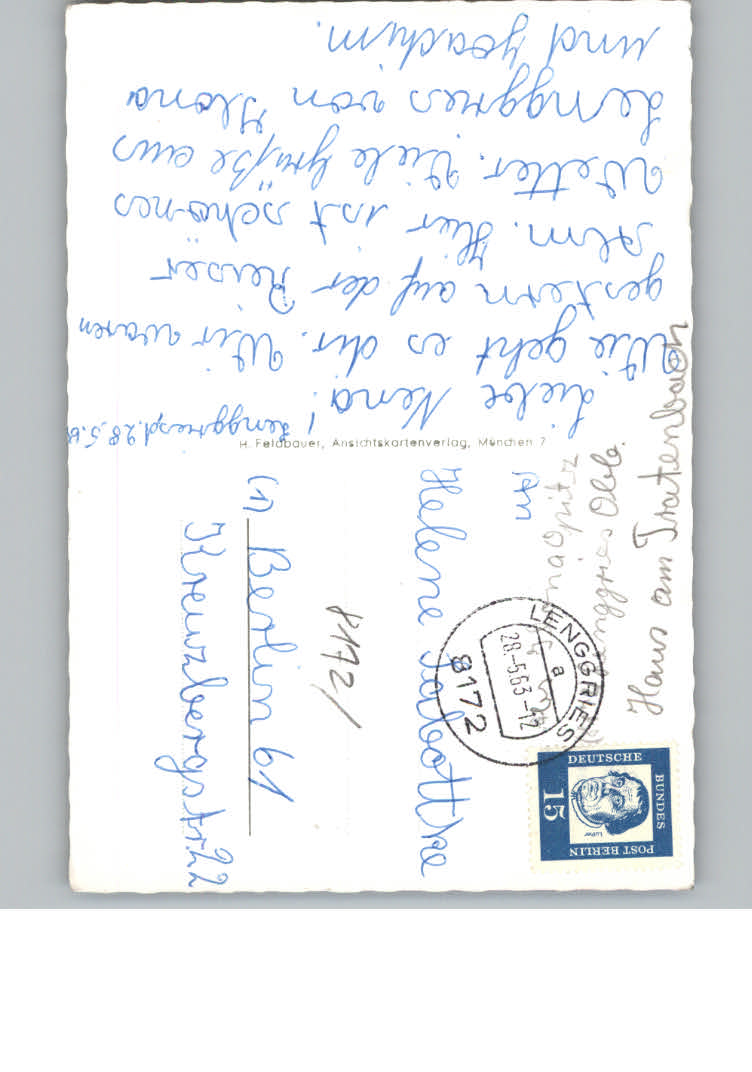 Lenggries, d. 28.5.63
Liebe Nena!
Wie geht es dir. Wir waren
gestern auf der Reiser
Alm. Hier ist schönes
Wetter. Viele Grüße aus
Lenggries von Ilona
und Joachim.
H. Feldbauer, Ansichtskartenverlag, München 7
Opitz
Lenggries Obb.
Haus am Tratenbach
LENGGRIES
a
28.-5.63-12
8172
DEUTSCHE
BUNDES
POST BERLIN
15
Luther
An
Helene Tabottke
8172/
(1) Berlin 61
Kreuzbergstr. 22